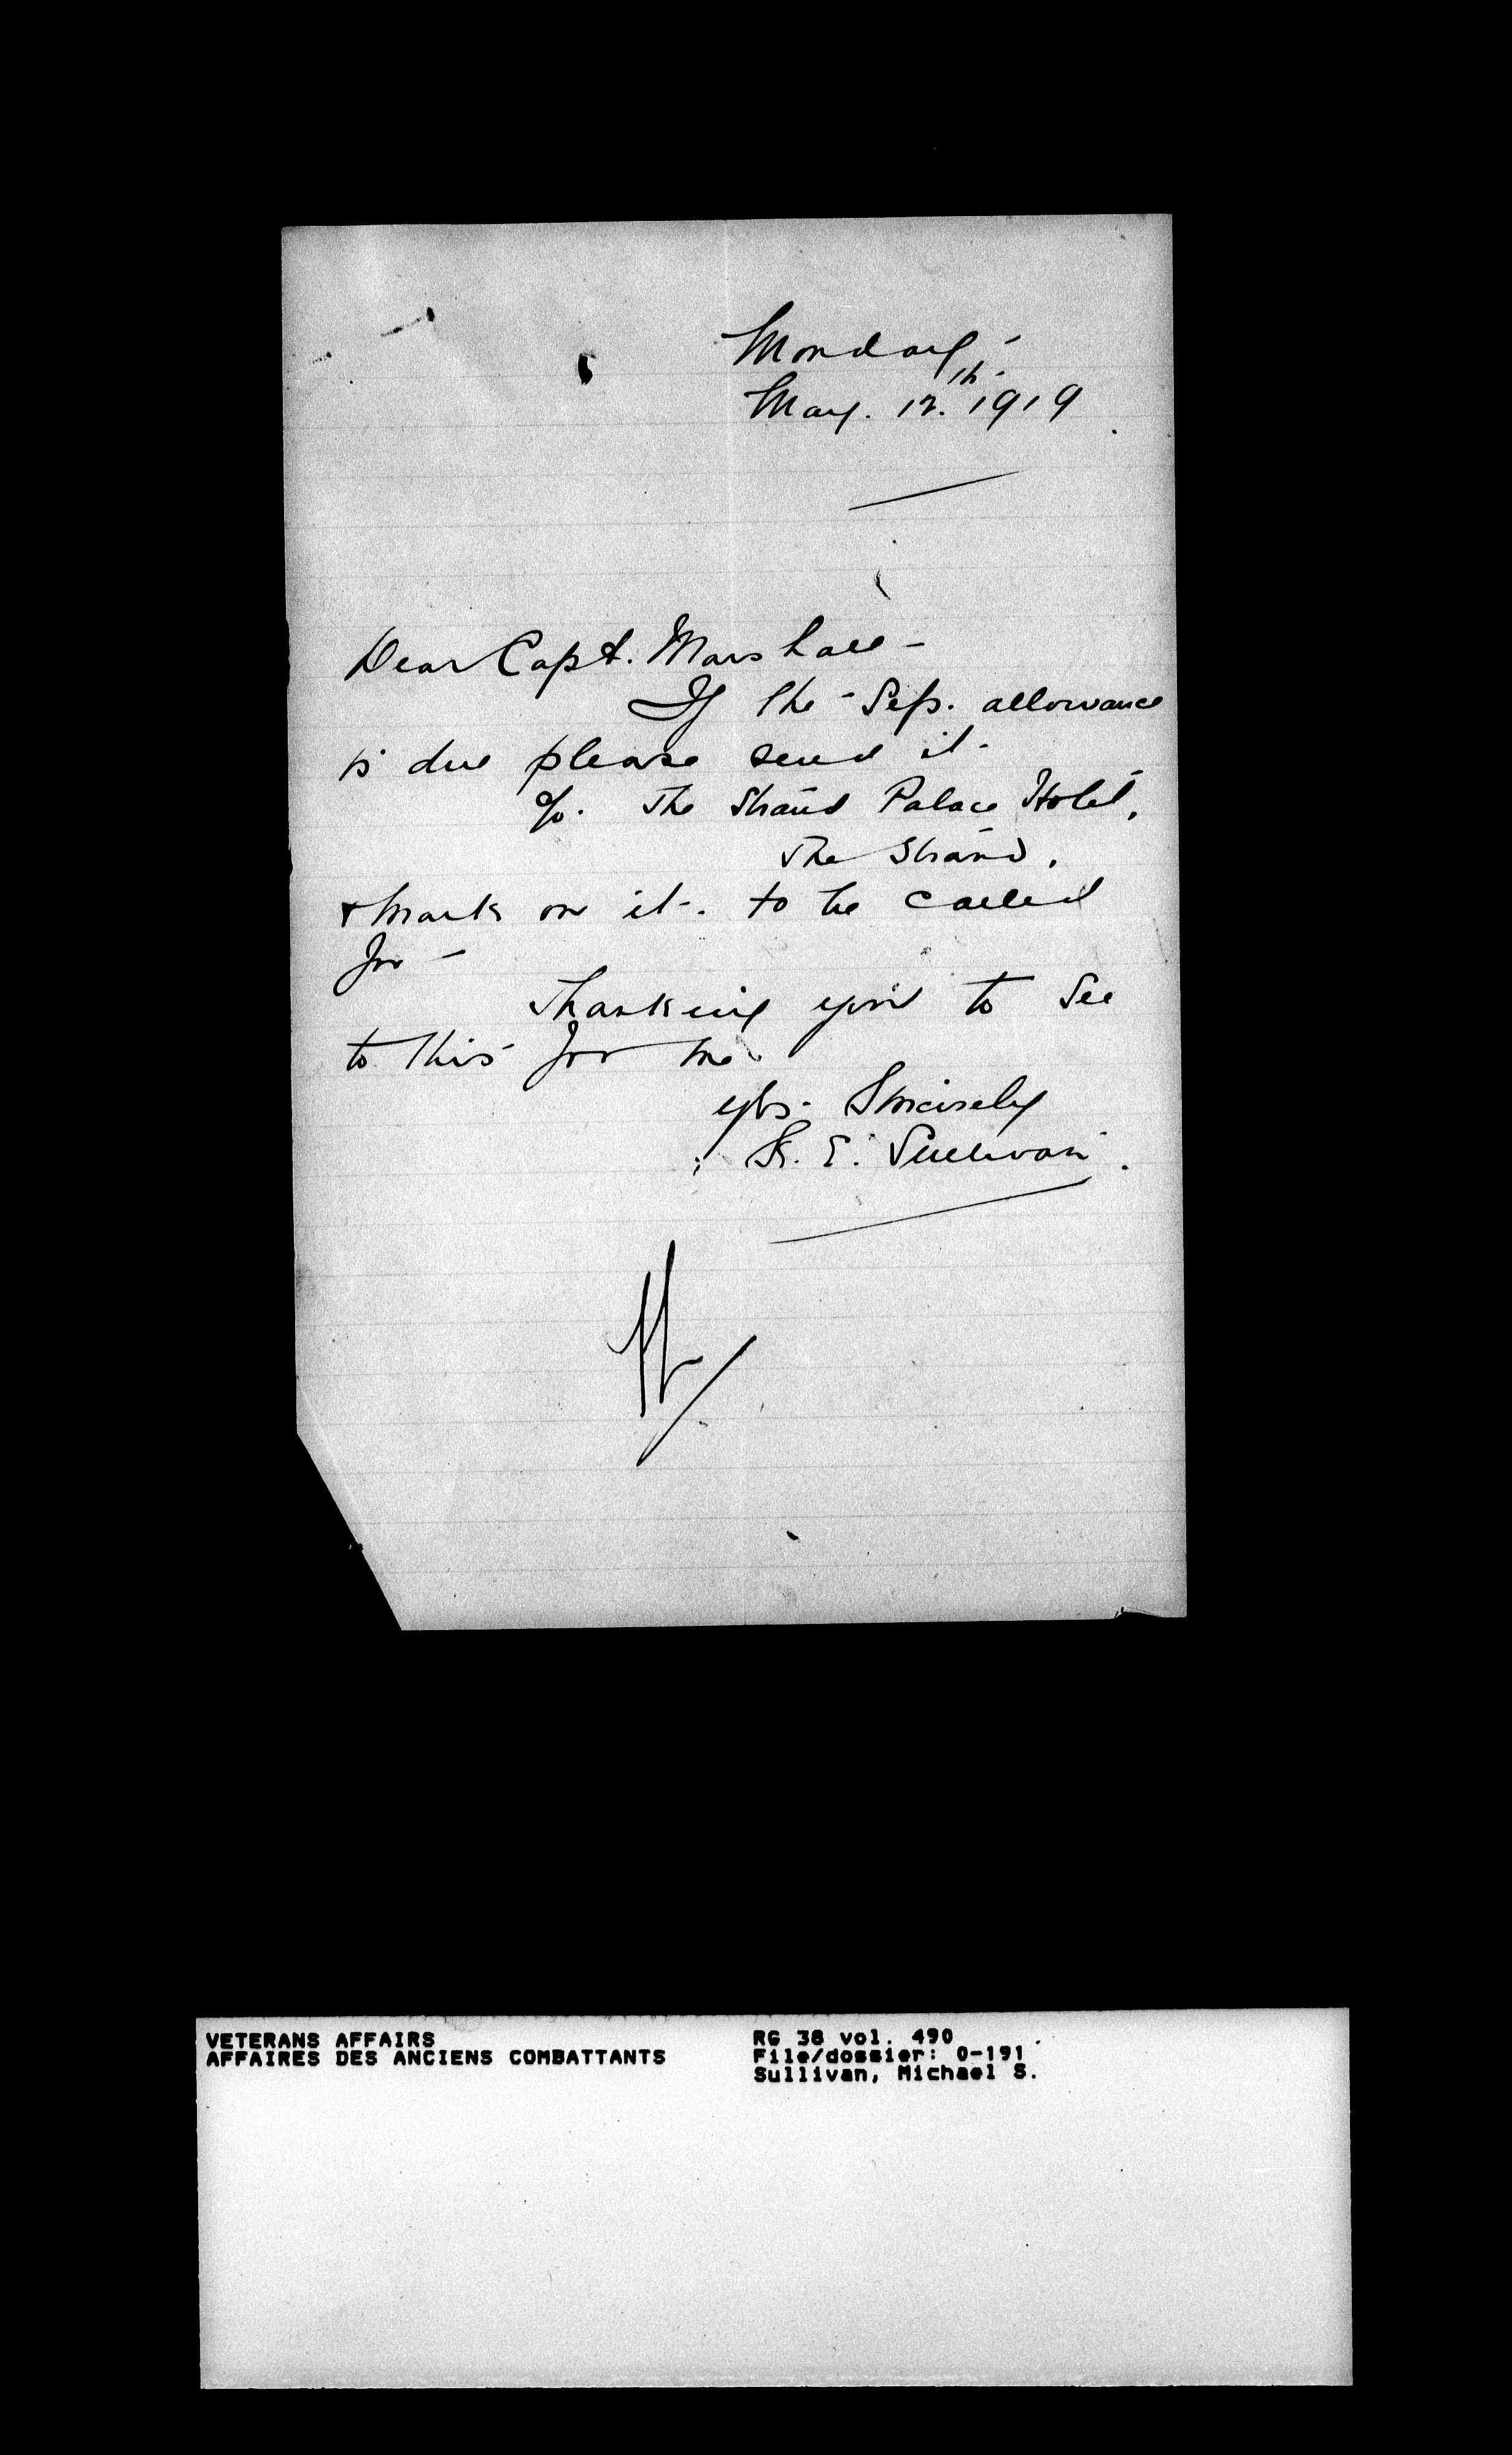 Monday -
May. 12.th 1919
Dear Capt. Marshall -
If the Sep. allowance
is due please send it -
c/o. The Strand Palace Hotel,
The Strand,
& mark on it - to be called
for -
Thanking you to see
to this for me
yrs. Sincerely
E. Sullivan.
VETERANS AFFAIRS
AFFAIRES DES ANCIENS COMBATTANTS
RG 38 vol. 490
File/dossier: 0-191
Sullivan, Michael S.